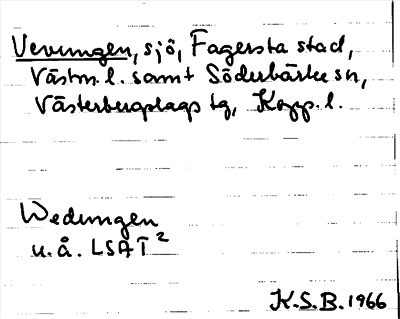 Vevungen, sjö, Fagersta stad,
Västm. l. samt Söderbärke sn,
Västerbergslags tg, Kopp. l.
Wedungen
u. å. LSA T²
K.S.B. 1966